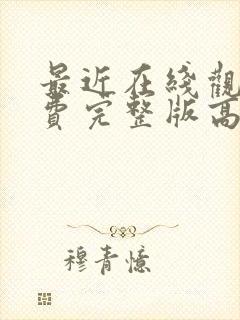 最近在线觀
費完整版高
穆青憶